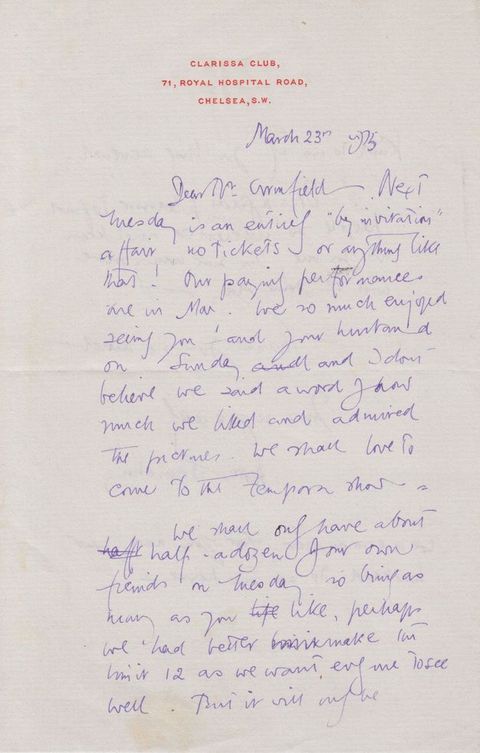 CLARISSA CLUB,
71, ROYAL HOSPITAL ROAD,
CHELSEA, S.W.
March 23rd
Dear Mr. Next
Tuesday is an entirely "by invitation"
affair no tickets or anything like
that! Our paying performances
are in May. We so much enjoyed
seeing you and your husband
on Sunday and I don't
believe we said a word of how
much we liked and admired
the pictures. We shall love to
come to the Tempera show =
We shall only have about
half - a dozen of our own
friends on Tuesday so bring as
many as you like, perhaps
we had better make the
limit 12 as we want everyone to see
well. But it will only be